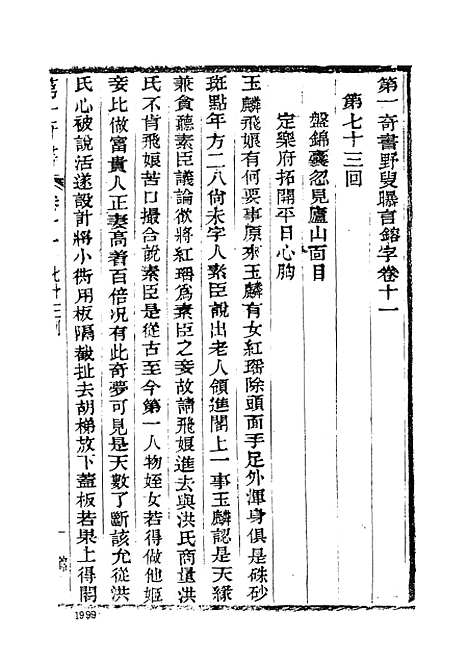 第一奇書野叟曝言鎔字卷十一
第七十三回
盤錦囊忽見廬山面目
定樂府拓開平日心胸
玉麟飛娘有何要事原來玉麟有女紅瑶除頭面手足外渾身俱是硃砂
斑點年方二八尙未字人素臣說出老人領進閣上一事玉麟認是天緣
兼食聽素臣議論欲將紅瑶爲素臣之妾故請飛娘進去與洪氏商量洪
氏不肯飛娘苦口撮合說素臣是從古至今第一人物姪女若得做他姬
妾比做富貴人正妻高着百倍况有此奇夢可見是天數了斷該允從洪
氏心被說活遂設計將小衖用板隔截扯去胡梯放下蓋板若果上得閣
七十三回
1999